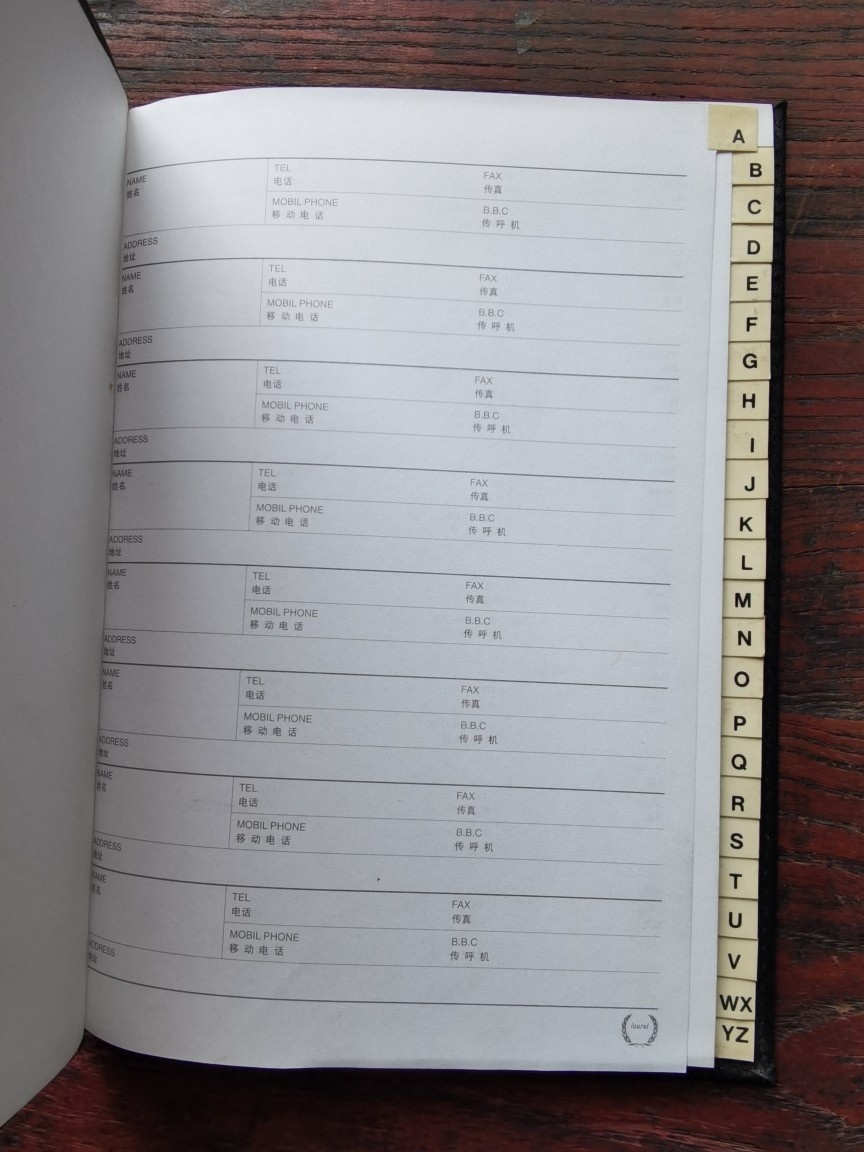 NAME
姓名
TEL
电话
FAX
传真
MOBIL PHONE
移动电话
B.B.C
传呼机
ADDRESS
地址
NAME
姓名
TEL
电话
FAX
传真
MOBIL PHONE
移动电话
B.B.C
传呼机
ADDRESS
地址
NAME
姓名
TEL
电话
FAX
传真
MOBIL PHONE
移动电话
B.B.C
传呼机
ADDRESS
地址
NAME
姓名
TEL
电话
FAX
传真
MOBIL PHONE
移动电话
B.B.C
传呼机
ADDRESS
地址
NAME
姓名
TEL
电话
FAX
传真
MOBIL PHONE
移动电话
B.B.C
传呼机
ADDRESS
地址
NAME
姓名
TEL
电话
FAX
传真
MOBIL PHONE
移动电话
B.B.C
传呼机
ADDRESS
地址
NAME
姓名
TEL
电话
FAX
传真
MOBIL PHONE
移动电话
B.B.C
传呼机
ADDRESS
地址
NAME
姓名
TEL
电话
FAX
传真
MOBIL PHONE
移动电话
B.B.C
传呼机
ADDRESS
地址
laurel
A
B
C
D
E
F
G
H
I
J
K
L
M
N
O
P
Q
R
S
T
U
V
WX
YZ